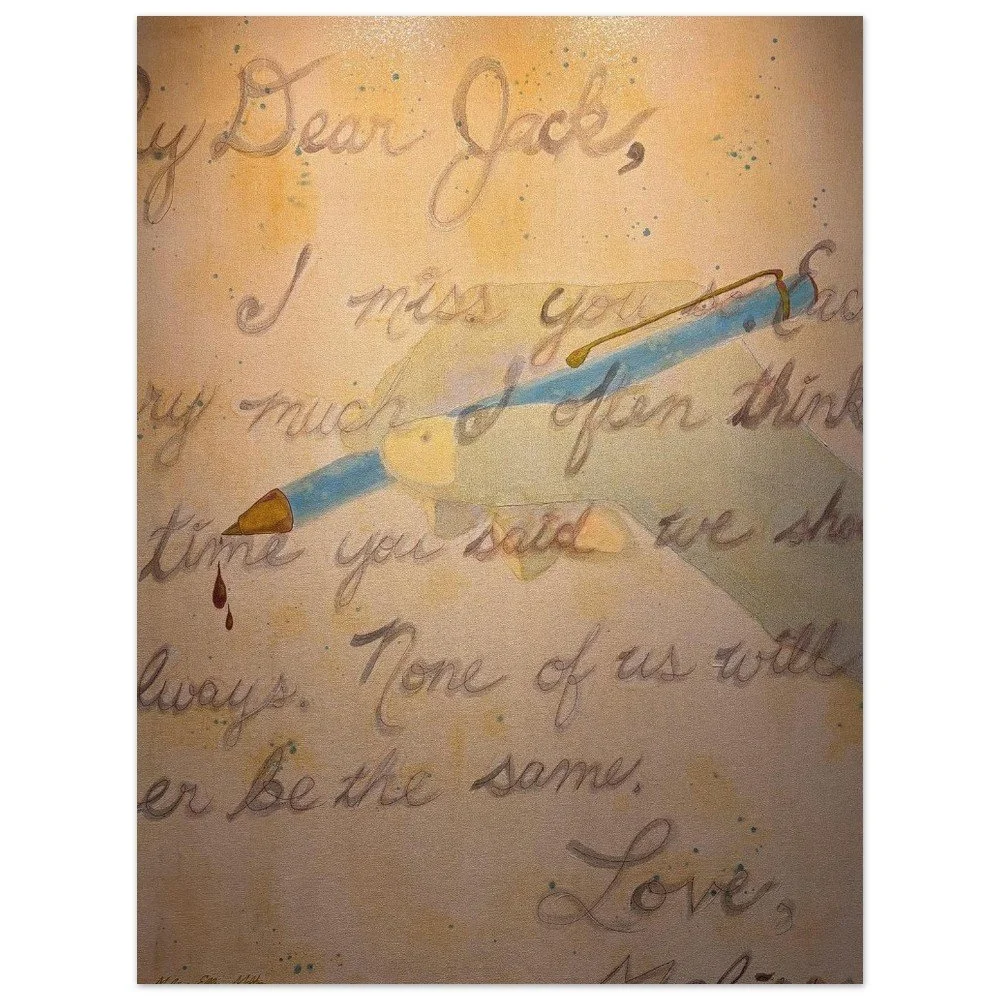 y Dear Jack,
I miss you so. Eac
ry much I often think
time you said we sho
lways. None of us will
er be the same.
Love,